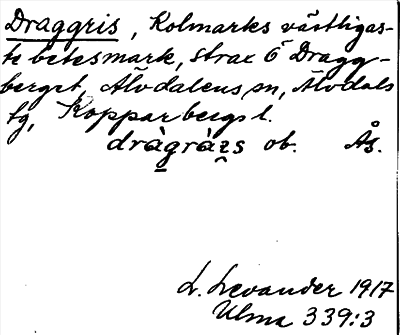 Draggris, Kolmarks västligas-
te betesmark, strax ö Dragg-
berget, Älvdalens sn, Älvdals
tg, Kopparbergs l.
dràgràis ob. Ås.
L. Levander 1917
Ulma 339:3